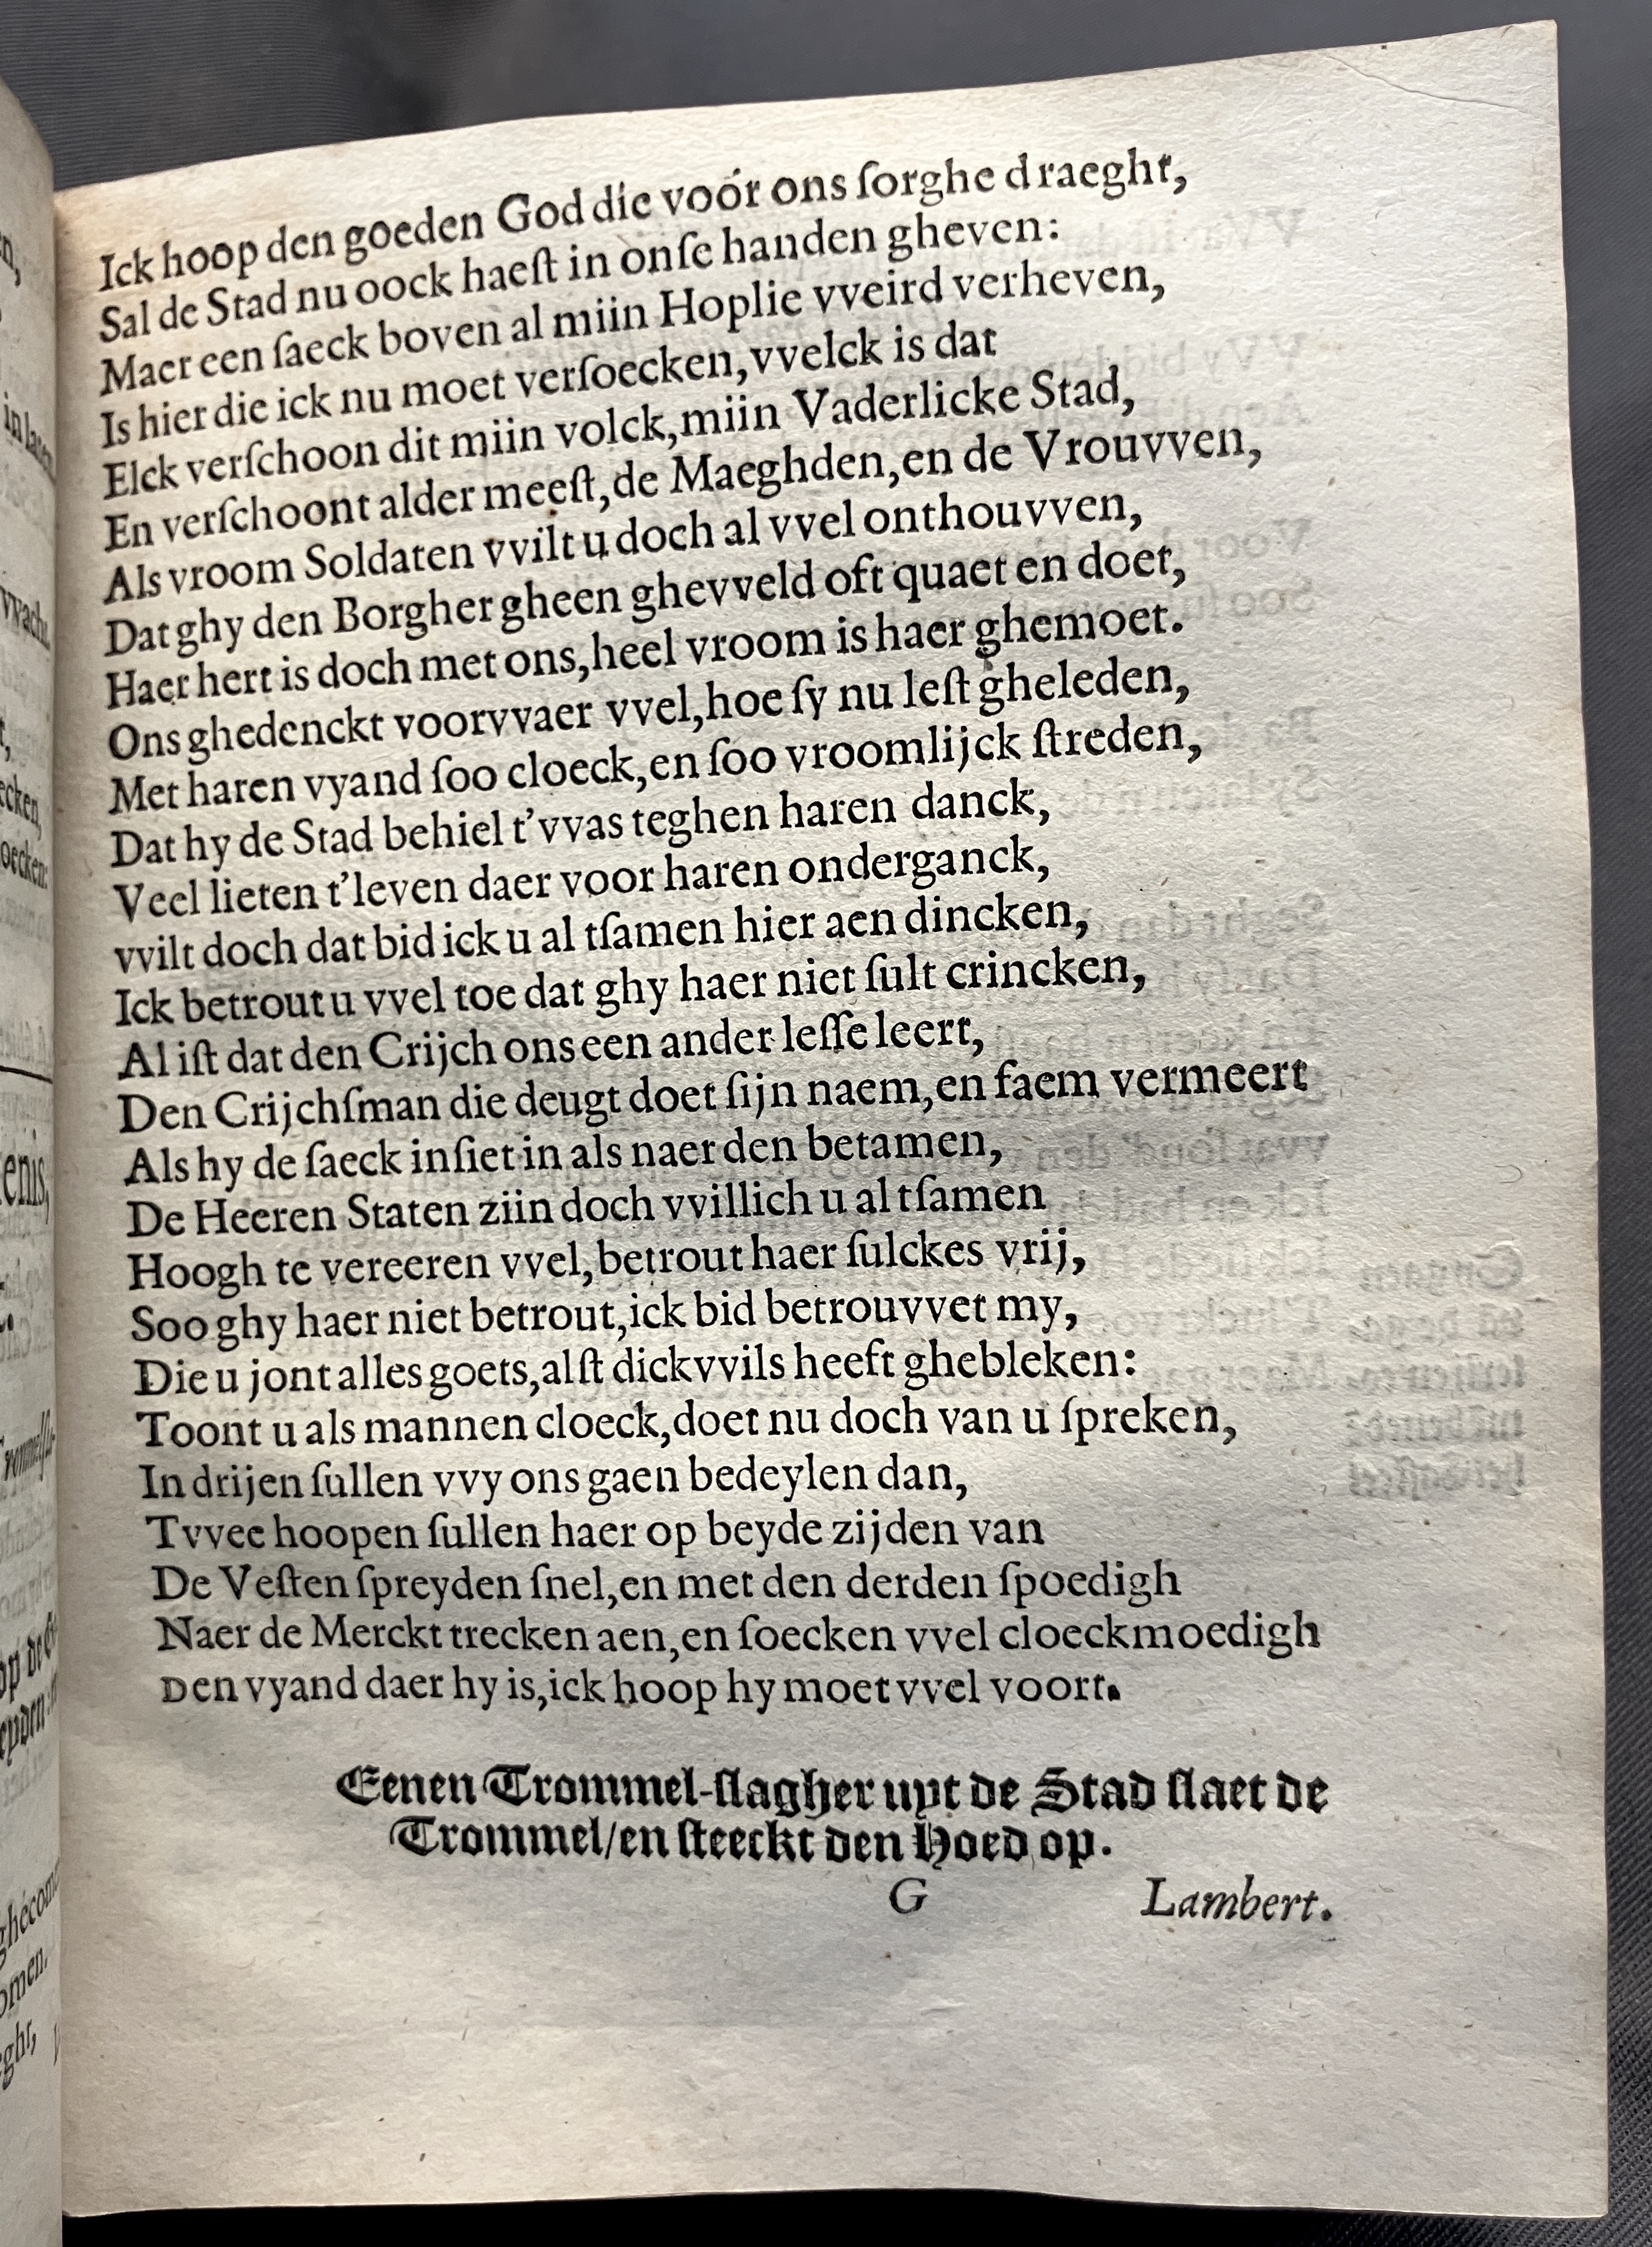 Ick hoop den goeden God die voór ons ſorghe draeght,
Sal de Stad nu oock haeſt in onſe handen gheven:
Maer een ſaeck boven al miin Hoplie vveird verheven,
Is hier die ick nu moet verſoecken, vvelck is dat
Elck verſchoon dit miin volck, miin Vaderlicke Stad,
En verſchoont alder meeſt, de Maeghden, en de Vrouvven,
Als vroom Soldaten vvilt u doch al vvel onthouvven,
Dat ghy den Borgher gheen ghevveld oft quaet en doet,
Haer hert is doch met ons, heel vroom is haer ghemoet.
Ons ghedenckt voorvvaer vvel, hoe ſy nu leſt gheleden,
Met haren vyand ſoo cloeck, en ſoo vroomlijck ſtreden,
Dat hy de Stad behiel t'vvas teghen haren danck,
Veel lieten t'leven daer voor haren onderganck,
vvilt doch dat bid ick u al tſamen hier aen dincken,
Ick betrout u vvel toe dat ghy haer niet ſult crincken,
Al iſt dat den Crijch ons een ander leſſe leert,
Den Crijchſman die deugt doet ſijn naem, en faem vermeert
Als hy de ſaeck inſiet in als naer den betamen,
De Heeren Staten ziin doch vvillich u al tſamen
Hoogh te vereeren vvel, betrout haer ſulckes vrij,
Soo ghy haer niet betrout, ick bid betrouvvet my,
Die u jont alles goets, alſt dickvvils heeft ghebleken:
Toont u als mannen cloeck, doet nu doch van u ſpreken,
In drijen ſullen vvy ons gaen bedeylen dan,
Tvvee hoopen ſullen haer op beyde zijden van
De Veſten ſpreyden ſnel, en met den derden ſpoedigh
Naer de Merckt trecken aen, en ſoecken vvel cloeckmoedigh
Den vyand daer hy is, ick hoop hy moet vvel voort.
Eenen Trommel-ſlagher uyt de Stad ſlaet de
Trommel/en ſteeckt den Hoed op.
G Lambert.